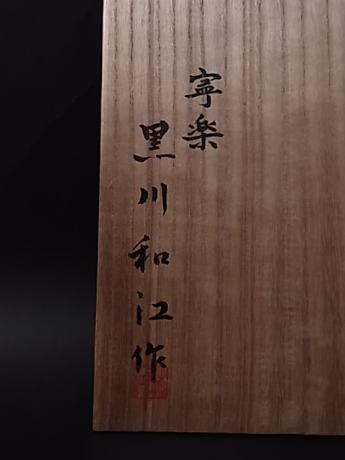 寧楽
黒川和江作